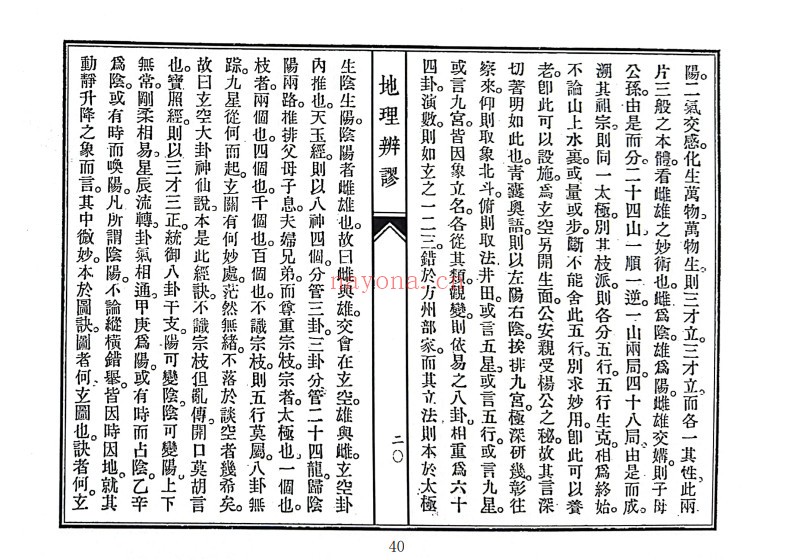 陽。二氣交感。化生萬物。萬物生則三才立。三才立而各一其性。此兩
片三般之本體。看雌雄之妙術也。雌爲陰。雄爲陽。雌雄交媾。則子母
公孫。由是而分。二十四山。一順一逆。一山兩局。四十八局。由是而成。
溯其祖宗。則同一太極。別其枝派。則各分五行。五行生克。相爲終始。
不論山上水裏。或量或步。斷不能舍此五行。別求妙用。卽此可以養
老。卽此可以設施。爲玄空另開生面。公安親受楊公之秘。故其言深
切著明如此也。青囊奧語則以左陽右陰。挨排九宮。極深研幾。彰往
察來。仰則取象北斗。俯則取法井田。或言五星。或言五行。或言九星。
或言九宮。皆因象立名。各從其類。觀變則依易之八卦。相重爲六十
四卦。演數則如玄之一二三。錯於方州部家。而其立法則本於太極
地理辨謬
二〇
生陰生陽。陰陽者雌雄也。故曰雌與雄。交會在玄空。雄與雌。玄空卦
內推也。天玉經則以八神四個。分管三卦。三卦分管二十四龍。歸陰
陽兩路。推排父母子息。夫婦兄弟。而尊重宗枝。宗者太極也。一個也。
枝者兩個也。四個也。千個也。百個也。不識宗枝。則五行莫屬。八卦無
踪。九星從何而起。玄關有何妙處。茫然無緒。不落於談空者幾希矣。
故曰玄空大卦神仙說。本是此經訣。不識宗枝但亂傳。開口莫胡言
也。寶照經則以三才三正。統御八卦干支。陽可變陰。陰可變陽。上下
無常。剛柔相易。星辰流轉。卦氣相通。甲庚爲陽。或有時而占陰。乙辛
爲陰。或有時而喚陽。凡所謂陰陽不論縱橫錯舉。皆因時因地。就其
動靜升降之象而言。其中微妙。本於圖訣。圖者何。玄圖也。訣者何。玄
nayona.cn
40